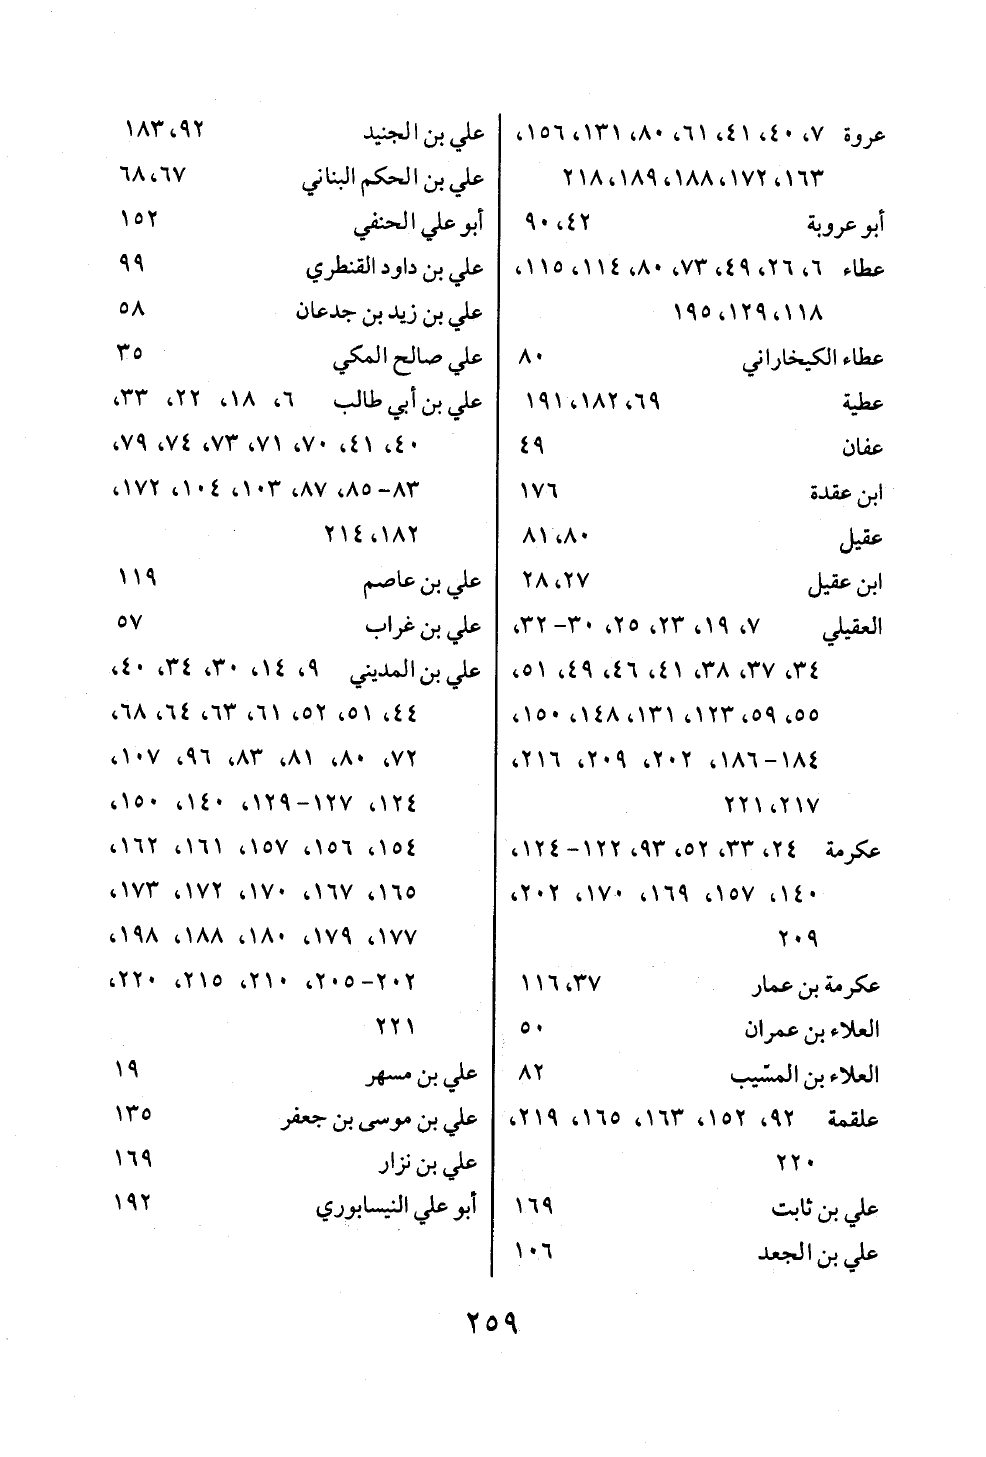 عروة ٧، ٤٠، ٤١، ٦١، ٨٠، ١٣١، ١٥٦،
١٦٣، ١٧٢، ١٨٨، ١٨٩، ٢١٨
أبو عروبة ٤٢، ٩٠
عطاء ٦، ٢٦، ٤٩، ٧٣، ٨٠، ١١٤، ١١٥،
١١٨، ١٢٩، ١٩٥
عطاء الكيخاراني ٨٠
عطية ٦٩، ١٨٢، ١٩١
عفان ٤٩
ابن عقدة ١٧٦
عقيل ٨٠، ٨١
ابن عقيل ٢٧، ٢٨
العقيلي ٧، ١٩، ٢٣، ٢٥، ٣٠-٣٢،
٣٤، ٣٧، ٣٨، ٤١، ٤٦، ٤٩، ٥١،
٥٥، ٥٩، ١٢٣، ١٣١، ١٤٨، ١٥٠،
١٨٤-١٨٦، ٢٠٢، ٢٠٩، ٢١٦،
٢١٧، ٢٢١
عكرمة ٢٤، ٣٣، ٥٢، ٩٣، ١٢٢-١٢٤،
١٤٠، ١٥٧، ١٦٩، ١٧٠، ٢٠٢،
٢٠٩
عكرمة بن عمار ٣٧، ١١٦
العلاء بن عمران ٥٠
العلاء بن المسّيب ٨٢
علقمة ٩٢، ١٥٢، ١٦٣، ١٦٥، ٢١٩،
٢٢٠
علي بن ثابت ١٦٩
علي بن الجعد ١٠٦
علي بن الجنيد ٩٢، ١٨٣
علي بن الحكم البناني ٦٧، ٦٨
أبو علي الحنفي ١٥٢
علي بن داود القنطري ٩٩
علي بن زيد بن جدعان ٥٨
علي صالح المكي ٣٥
علي بن أبي طالب ٦، ١٨، ٢٢، ٣٣،
٤٠، ٤١، ٧٠، ٧١، ٧٣، ٧٤، ٧٩،
٨٣-٨٥، ٨٧، ١٠٣، ١٠٤، ١٧٢،
١٨٢، ٢١٤
علي بن عاصم ١١٩
علي بن غراب ٥٧
علي بن المديني ٩، ١٤، ٣٠، ٣٤، ٤٠،
٤٤، ٥١، ٥٢، ٦١، ٦٣، ٦٤، ٦٨،
٧٢، ٨٠، ٨١، ٨٣، ٩٦، ١٠٧،
١٢٤، ١٢٧-١٢٩، ١٤٠، ١٥٠،
١٥٤، ١٥٦، ١٥٧، ١٦١، ١٦٢،
١٦٥، ١٦٧، ١٧٠، ١٧٢، ١٧٣،
١٧٧، ١٧٩، ١٨٠، ١٨٨، ١٩٨،
٢٠٢-٢٠٥، ٢١٠، ٢١٥، ٢٢٠،
٢٢١
علي بن مسهر ١٩
علي بن موسى بن جعفر ١٣٥
علي بن نزار ١٦٩
أبو علي النيسابوري ١٩٢
٢٥٩